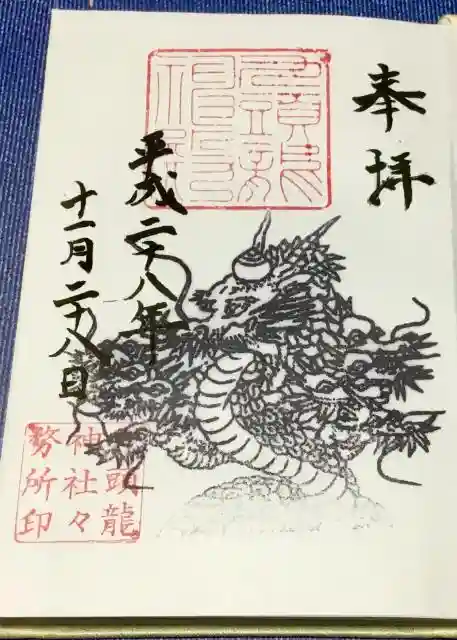 奉拝
平成二十八年
十一月二十八日
頭龍
神社々
務所印